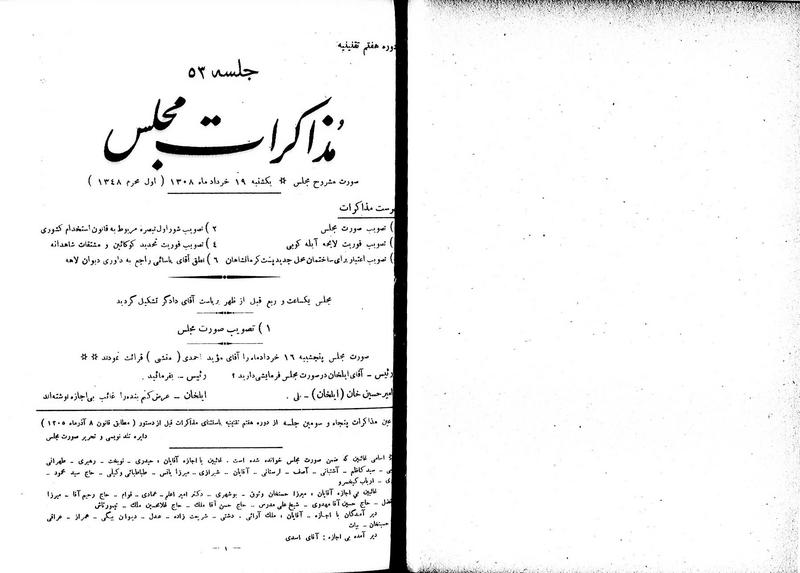 دوره هفتم تقنینیه
جلسه ۵۳
مذاکرات مجلس
صورت مشروح مجلس ❊ یکشنبه ۱۹ خرداد ماه ۱۳۰۸ ( اول محرم ۱۳۴۸ )
رست مذاکرات
) تصویب صورت مجلس
) تصویب فوریت لایحه آبله کوبی
) تصویب اعتبار برای ساختمان محل جدید پست کرمانشاهان
۲ ) تصویب شور اول تبصره مربوط به قانون استخدام کشوری
۴ ) تصویب فوریت تحدید کوکائین و مشتقات شاهدانه
۶ ) نطق آقای یاسائی راجع به داوری دیوان لاهه
مجلس یکساعت و ربع قبل از ظهر بریاست آقای دادگر تشکیل گردید
۱ ) تصویب صورت مجلس
صورت مجلس پنجشنبه ۱۶ خرداد ماه را آقای مؤید احمدی ( منشی ) قرائت نمودند ❊❊
رئیس ـ آقای ایلخان در صورت مجلس فرمایشی دارید ؟
امیر حسین خان (ایلخان) ـ بلی .
رئیس ـ بفرمائید .
ایلخان ـ عرض کنم بنده را غائب بی اجازه نوشته‌اند
عین مذاکرات پنجاه و سومین جلسه از دوره هفتم تقنینیه باستثنای مذاکرات قبل از دستور ( مطابق قانون ۸ آذرماه ۱۳۰۵ )
دایره تند نویسی و تحریر صورت مجلس
❊ اسامی غائبین که ضمن صورت مجلس خوانده شده است . غائبین با اجازه آقایان ، حیدری ـ نوبخت ـ رهبری ـ طهرانی
ـ سید کاظم ـ آشتیانی ـ آصف ـ لرستانی ـ آقایان ـ شیرازی ـ میرزا یانس ـ طباطبائی وکیلی ـ حاج سید محمود ـ
ـ ارباب کیخسرو
غائبین بی اجازه آقایان ، میرزا حسنخان وثوق ـ بوشهری ـ دکتر امیر اعلم ـ عمادی ـ قوام ـ حاج رحیم آقا ـ میرزا
ـ حاج حسین آقا مهدوی ـ شیخ علی مدرس ـ حاج حسن آقا ملک ـ حاج غلامحسین ملک ـ تیمورتاش
دیر آمدگان با اجازه ـ آقایان ، ملک آرائی . دشتی ـ شریعت زاده ـ عدل ـ دیوان بیگی ـ همراز ـ عراقی
حسنخان ـ بیات
دیر آمده بی اجازه : آقای اسدی
ـ ۱ ـ